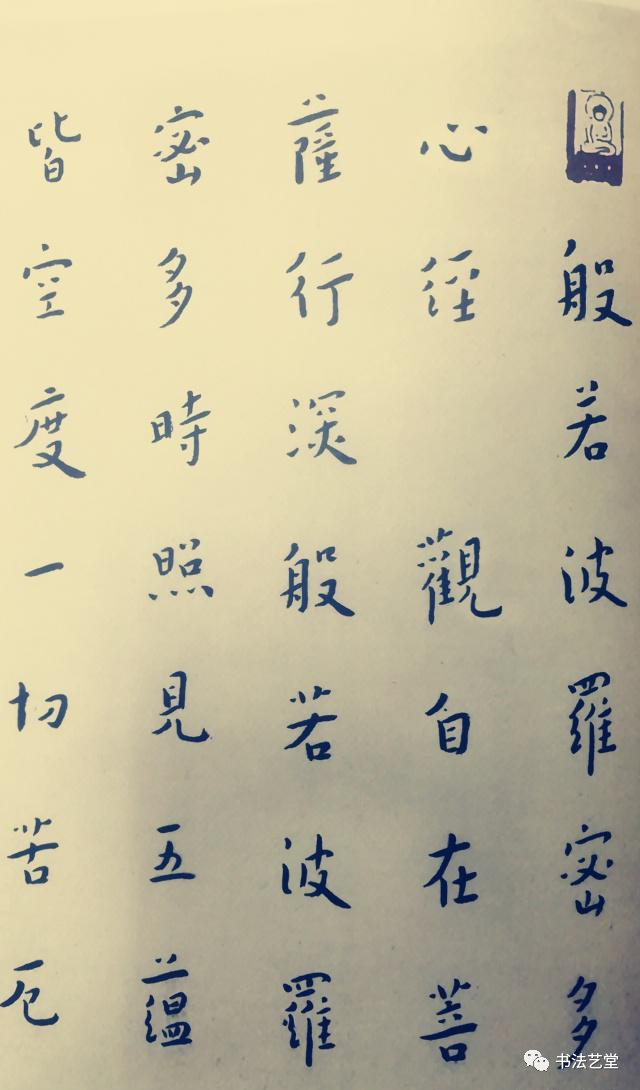 般若波羅密多
心經 觀自在菩
薩行深般若波羅
密多時照見五蘊
皆空度一切苦厄
书法艺堂